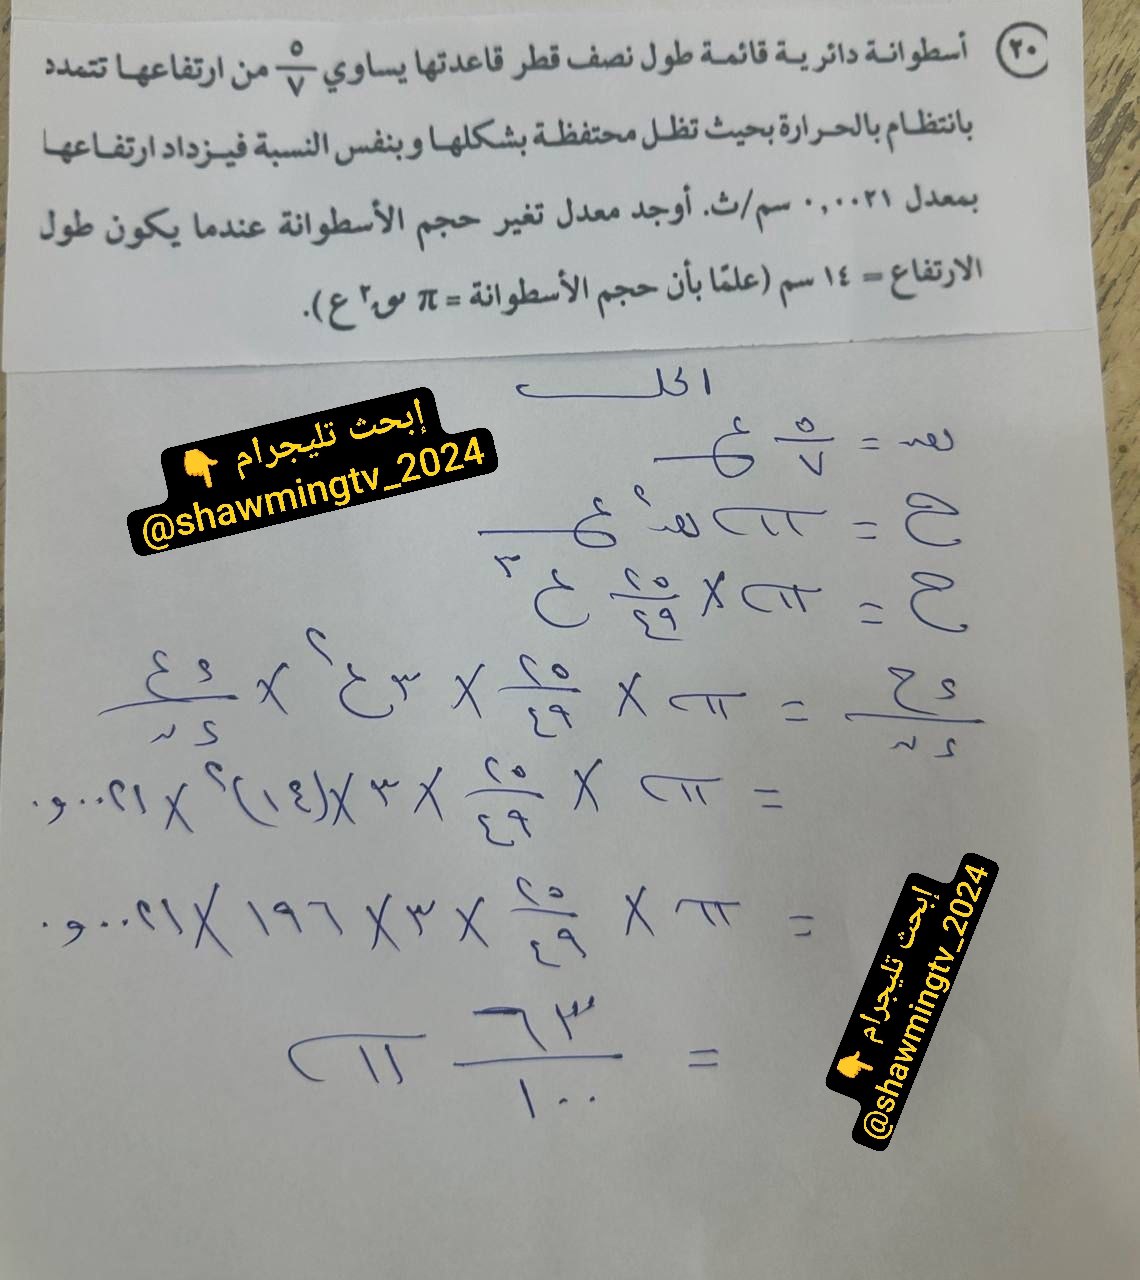 ٢٠ أسطوانة دائرية قائمة طول نصف قطر قاعدتها يساوي ٥/٧ من ارتفاعها تتمدد
بانتظام بالحرارة بحيث تظل محتفظة بشكلها وبنفس النسبة فيزداد ارتفاعها
بمعدل ٠,٠٠٢١ سم/ث. أوجد معدل تغير حجم الأسطوانة عندما يكون طول
الارتفاع = ١٤ سم (علمًا بأن حجم الأسطوانة = π نق٢ ع).
الحل
إبحث تليجرام 👇
@shawmingtv_2024
نق = ٥/٧ ع
ح = π نق٢ ع
ح = π × ٢٥/٤٩ ع٣
ءح/ءن = π × ٢٥/٤٩ × ٣ع٢ × ءع/ءن
= π × ٢٥/٤٩ × ٣ × (١٤)٢ × ٠,٠٠٢١
= π × ٢٥/٤٩ × ٣ × ١٩٦ × ٠,٠٠٢١
= ٦٣/١٠٠ π
إبحث تليجرام 👇
@shawmingtv_2024